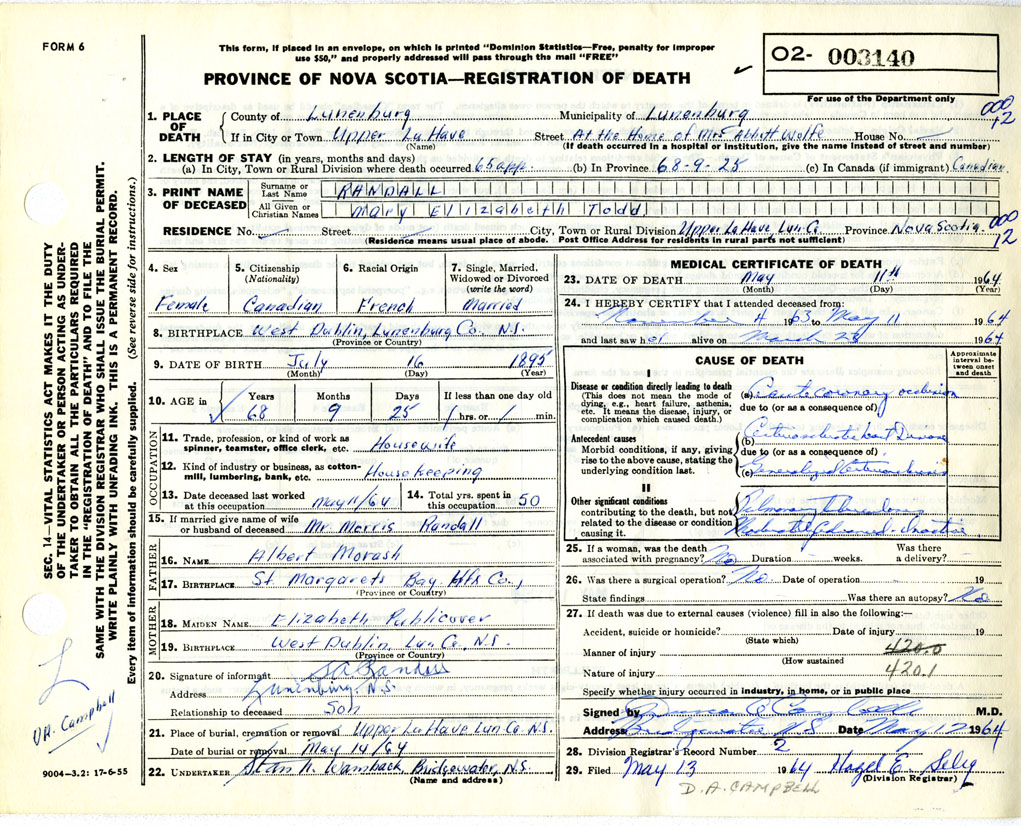 FORM 6
This form, if placed in an envelope, on which is printed "Dominion Statistics—Free, penalty for improper
use $50," and properly addressed will pass through the mail "FREE"
PROVINCE OF NOVA SCOTIA—REGISTRATION OF DEATH
02- 003140
For use of the Department only
1. PLACE OF DEATH County of Lunenburg Municipality of Lunenburg 000
If in City or Town Upper La Have Street At the Home of Mrs Abbott Wolfe House No. 12
(Name) (If death occurred in a hospital or institution, give the name instead of street and number)
2. LENGTH OF STAY (in years, months and days)
(a) In City, Town or Rural Division where death occurred 65 app. (b) In Province 68-9-25 (c) In Canada (if immigrant) Canadian
3. PRINT NAME OF DECEASED Surname or Last Name RANDALL
All Given or Christian Names Mary Elizabeth Todd
RESIDENCE No. Street City, Town or Rural Division Upper La Have Lun Co. Province Nova Scotia. 000
(Residence means usual place of abode. Post Office Address for residents in rural parts not sufficient) 12
4. Sex 5. Citizenship (Nationality) 6. Racial Origin 7. Single, Married, Widowed or Divorced (write the word)
Female Canadian French Married
8. BIRTHPLACE West Dublin, Lunenburg Co. N.S.
(Province or Country)
9. DATE OF BIRTH July 16 1895
(Month) (Day) (Year)
10. AGE in Years Months Days If less than one day old
68 9 25 hrs. or min.
OCCUPATION
11. Trade, profession, or kind of work as spinner, teamster, office clerk, etc. Housewife
12. Kind of industry or business, as cotton-mill, lumbering, bank, etc. House Keeping
13. Date deceased last worked at this occupation May 11/64 14. Total yrs. spent in this occupation 50
15. If married give name of wife or husband of deceased Mr. Morris Randall
FATHER
16. NAME Albert Morash
17. BIRTHPLACE St Margarets Bay Hfx Co.,
(Province or Country)
MOTHER
18. MAIDEN NAME Elizabeth Publicover
19. BIRTHPLACE West Dublin, Lun Co, N.S.
(Province or Country)
20. Signature of informant Randall
Address Lunenburg, N.S.
Relationship to deceased Son
21. Place of burial, cremation or removal Upper La Have Lun Co. N.S.
Date of burial or removal May 14/64
22. UNDERTAKER Wamback, Bridgewater, N.S.
(Name and address)
MEDICAL CERTIFICATE OF DEATH
23. DATE OF DEATH May 11th 1964
(Month) (Day) (Year)
24. I HEREBY CERTIFY that I attended deceased from:
November 4 1963 to May 11 1964
and last saw her alive on March 28 1964
CAUSE OF DEATH
Approximate interval between onset and death
I
Disease or condition directly leading to death
(This does not mean the mode of dying, e.g., heart failure, asthenia, etc. It means the disease, injury, or complication which caused death.)
(a) Acute coronary occlusion
due to (or as a consequence of)
Antecedent causes
Morbid conditions, if any, giving rise to the above cause, stating the underlying condition last.
(b) heart Disease
due to (or as a consequence of)
(c) Generalized
II
Other significant conditions
contributing to the death, but not related to the disease or condition causing it.
Pulmonary
25. If a woman, was the death associated with pregnancy? No Duration weeks. Was there a delivery?
26. Was there a surgical operation? No Date of operation 19
State findings Was there an autopsy? No
27. If death was due to external causes (violence) fill in also the following:—
Accident, suicide or homicide? Date of injury 19
(State which)
Manner of injury 420.0
(How sustained)
Nature of injury 420.1
Specify whether injury occurred in industry, in home, or in public place
Signed by Campbell M.D.
Address Bridgewater N.S. Date May 12 1964
28. Division Registrar's Record Number 2
29. Filed May 13 1964 Hazel E. Selig
(Division Registrar)
D.A. CAMPBELL
SEC. 14—VITAL STATISTICS ACT MAKES IT THE DUTY
OF THE UNDERTAKER OR PERSON ACTING AS UNDER-
TAKER TO OBTAIN ALL THE PARTICULARS REQUIRED
IN THE "REGISTRATION OF DEATH" AND TO FILE THE
SAME WITH THE DIVISION REGISTRAR WHO SHALL ISSUE THE BURIAL PERMIT.
WRITE PLAINLY WITH UNFADING INK. THIS IS A PERMANENT RECORD.
Every item of information should be carefully supplied. (See reverse side for instructions.)
DR. Campbell
9004-3.2: 17-6-55